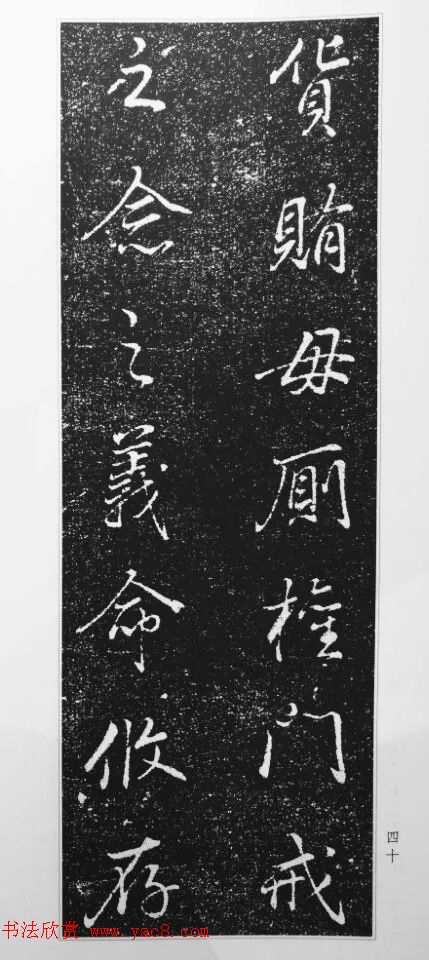 貨賄毋厠權門戒
之念之義命攸存
四十
书法欣赏 www.yac8.com